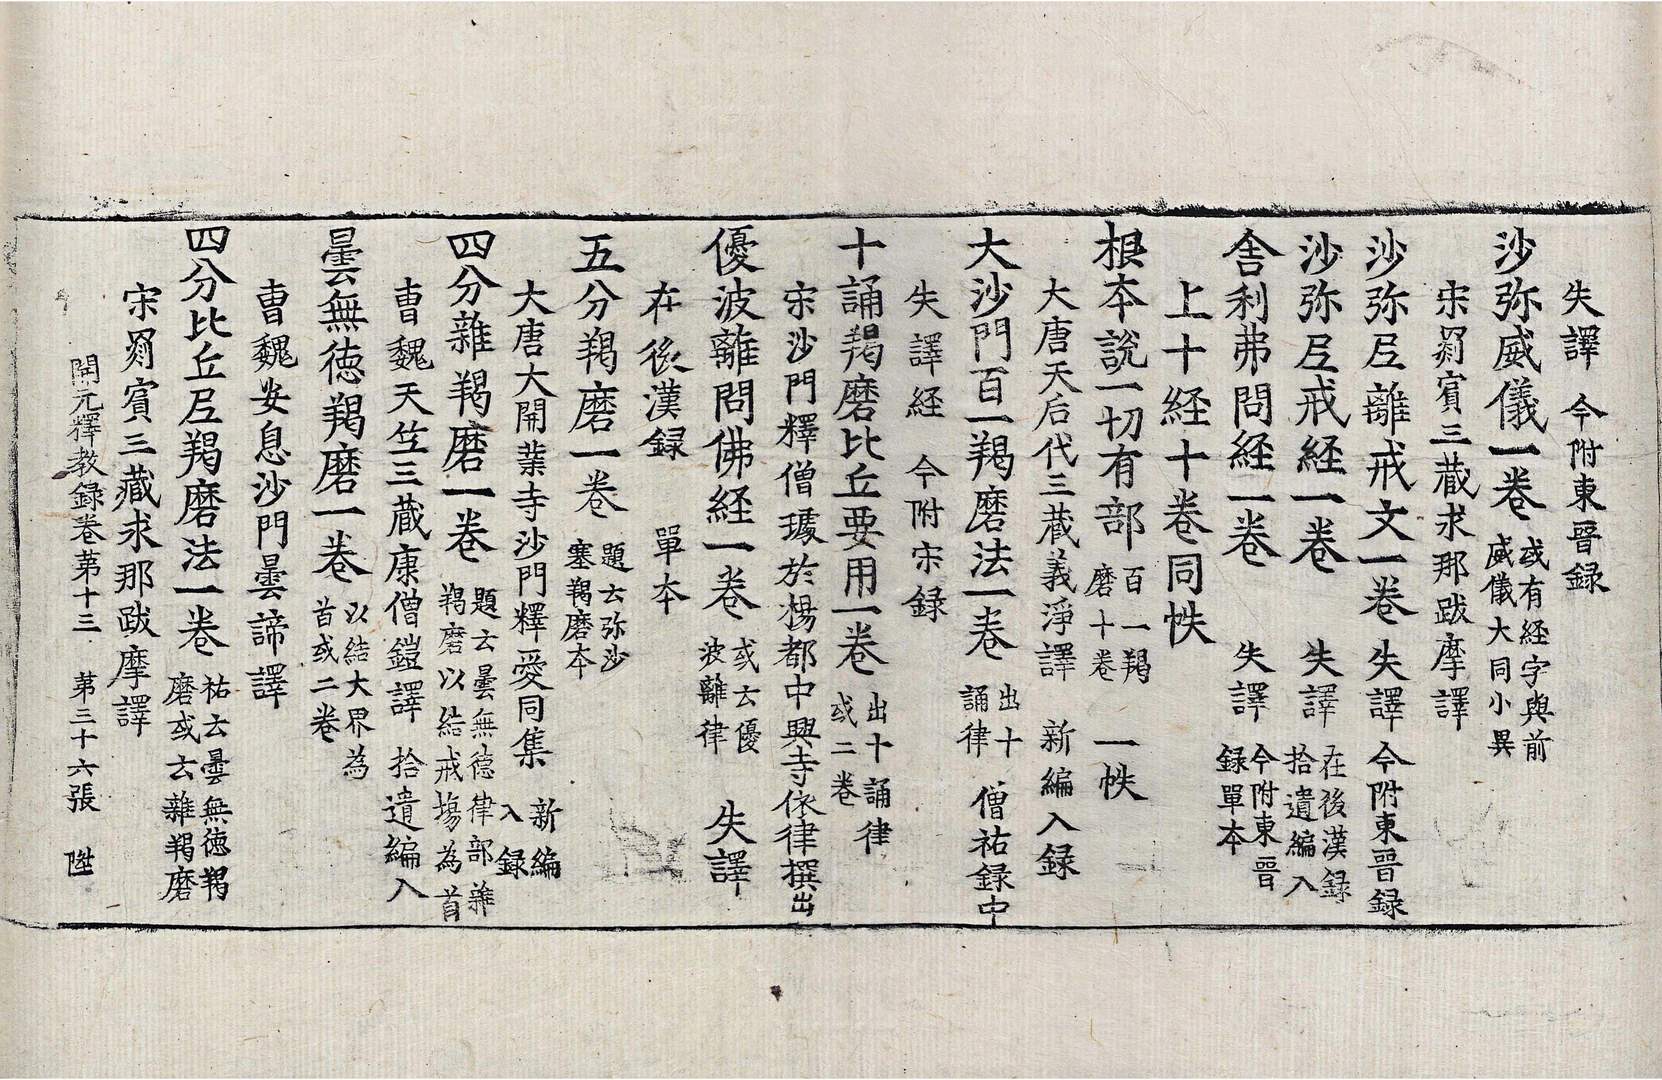 失譯 今附東晉録
沙弥威儀一卷 或有經字與前威儀大同小異
宋罽賓三藏求那跋摩譯
沙弥尼離戒文一卷 失譯今附東晉録
沙弥尼戒経一卷 失譯 在後漢録拾遺編入
舎利弗問経一卷 失譯 今附東晉録單本
上十経十卷同帙
根夲說一切有部百一羯磨十卷 一帙
大唐天后代三藏義淨譯 新編入録
大沙門百一羯磨法一卷 出十誦律 僧祐録中
失譯経 今附宋録
十誦羯磨比丘要用一卷 出十誦律或二卷
宋沙門釋僧璩於楊都中興寺依律撰出
優波離問佛経一卷 或云優波離律 失譯
在後漢録 單夲
五分羯磨一卷 題云弥沙塞羯磨夲
大唐大開業寺沙門釋愛同集 新編入録
四分雜羯磨一卷 題云曇無德律部雜羯磨以結戒塲為首
曺魏天竺三藏康僧鎧譯 拾遺編入
曇無德羯磨一卷 以結大界為首或二卷
曺魏安息沙門曇諦譯
四分比丘尼羯磨法一卷 祐云曇無德羯磨或云雜羯磨
宋罽賓三藏求那跋摩譯
開元釋教録卷苐十三 第三十六張 陞